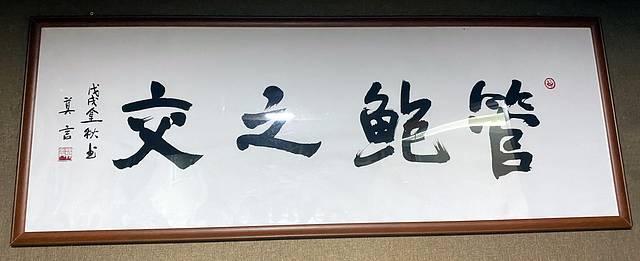 管鲍之交
戊戌金秋书
莫言